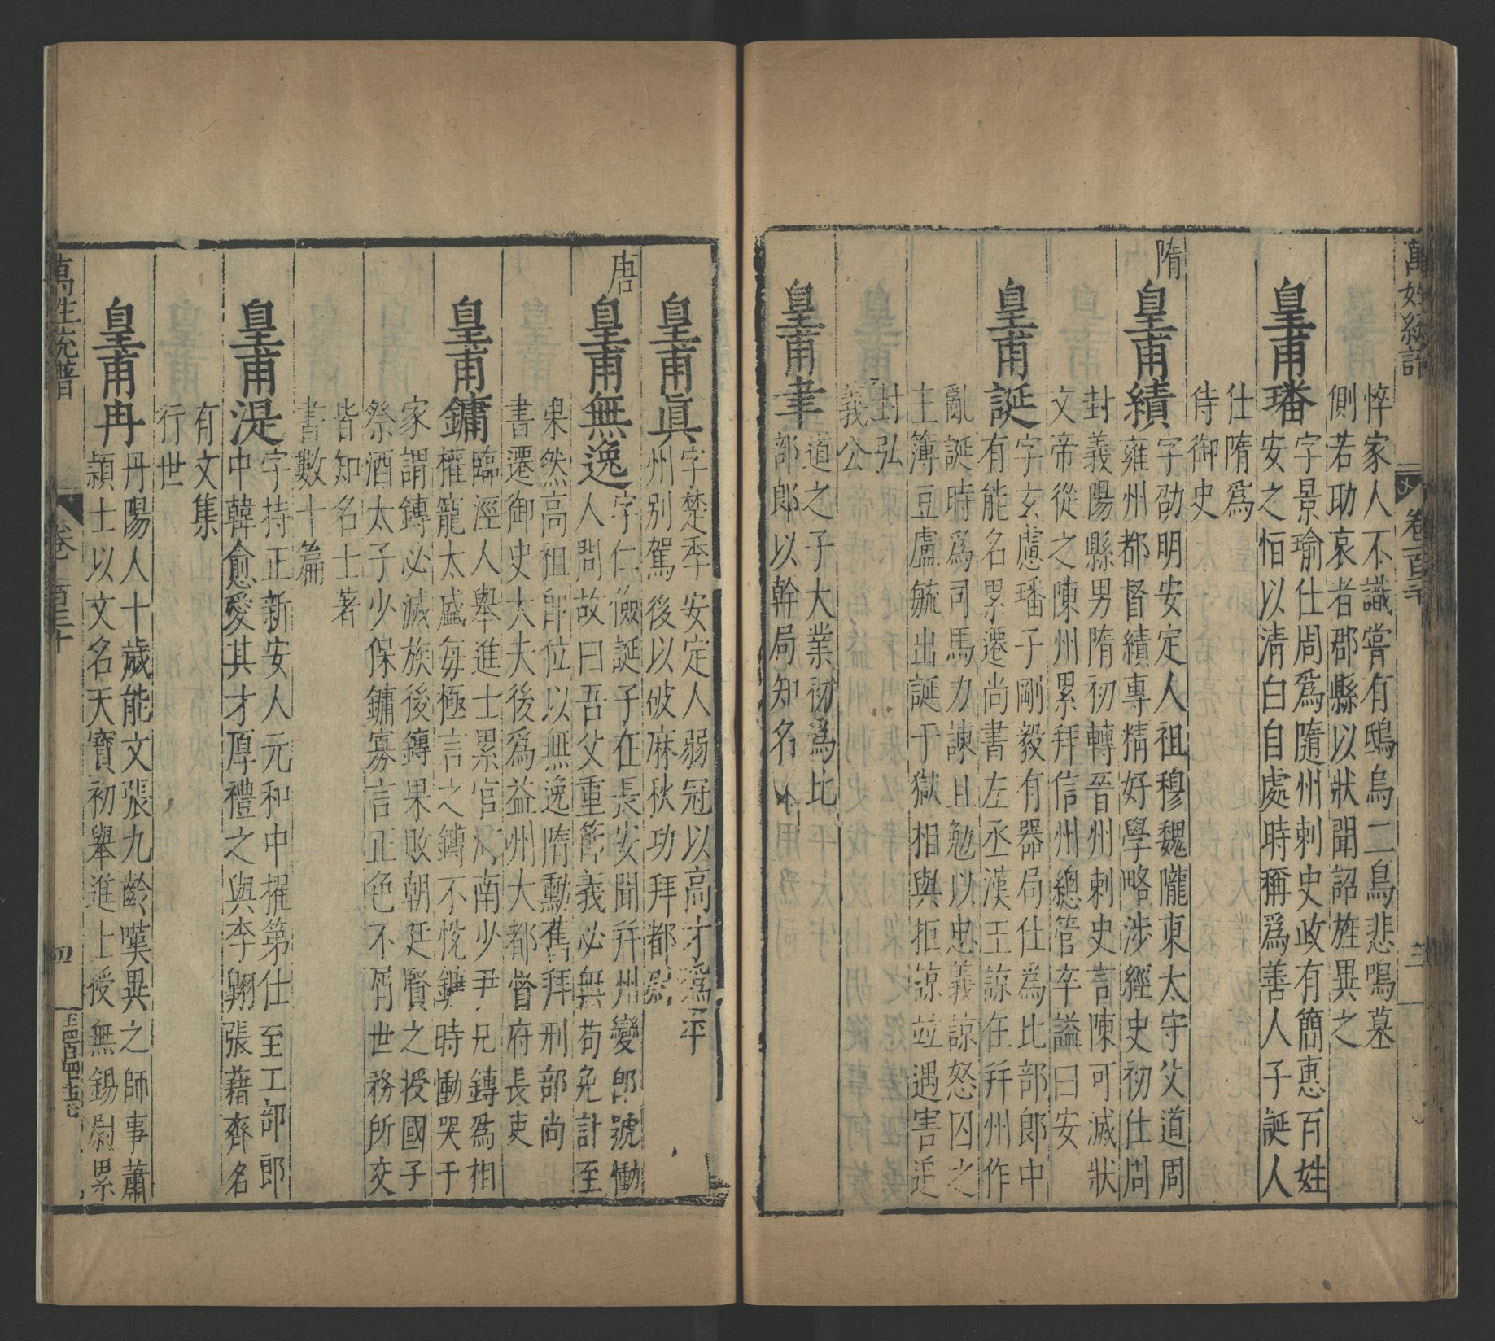 悴家人不識嘗有鴟烏二鳥悲鳴墓
側若助哀者郡縣以狀聞詔旌異之
皇甫璠
字景瑜仕周爲隨州刺史政有簡惠百姓
安之恒以清白自處時稱爲善人子誕人
仕隋爲
侍御史
隋
皇甫績
字劭明安定人祖穆魏隴東太守父道周
雍州都督績專精好學略涉經史初仕周
封義陽縣男隋初轉晉州刺史言陳可滅狀
文帝從之陳州累拜信州總管卒謚曰安
皇甫誕
字玄慮璠子剛毅有器局仕爲比部郎中
有能名累遷尚書左丞漢王諒在幷州作
亂誕時爲司馬力諫且勉以忠義諒怒囚之
主簿豆盧毓出誕于獄相與拒諒竝遇害追
封弘
義公
皇甫聿
道之子大業初爲比
部郎以幹局知名
皇甫眞
字楚季安定人弱冠以高才爲平
州別駕後以破麻秋功拜都尉
唐
皇甫無逸
字仁儉誕子在長安聞幷州變即號慟
人問故曰吾父重節義必無苟免計至
果然高祖即位以無逸隋勳舊拜刑部尚
書遷御史大夫後爲益州大都督府長吏
皇甫鏞
臨涇人舉進士累官河南少尹兄鏄爲相
權寵太盛每極言之鏄不悅鏞時慟哭于
家謂鏄必滅族後鏄果敗朝廷賢之授國子
祭酒太子少保鏞寡言正色不屑世務所交
皆知名士著
書數十篇
皇甫湜
字持正新安人元和中擢第仕至工部郎
中韓愈愛其才厚禮之與李翶張藉齊名
有文集
行世
皇甫冉
丹陽人十歲能文張九齡嘆異之師事蕭
潁士以文名天寶初舉進士授無錫尉累
萬姓統譜
卷一百三十
四